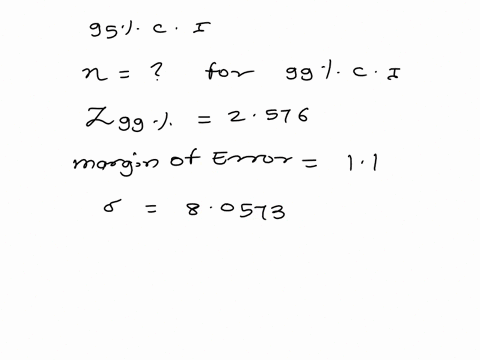 95% C.I
n = ? for 99% C.I
Z99% = 2.576
margin of Error = 1.1
σ = 8.0573